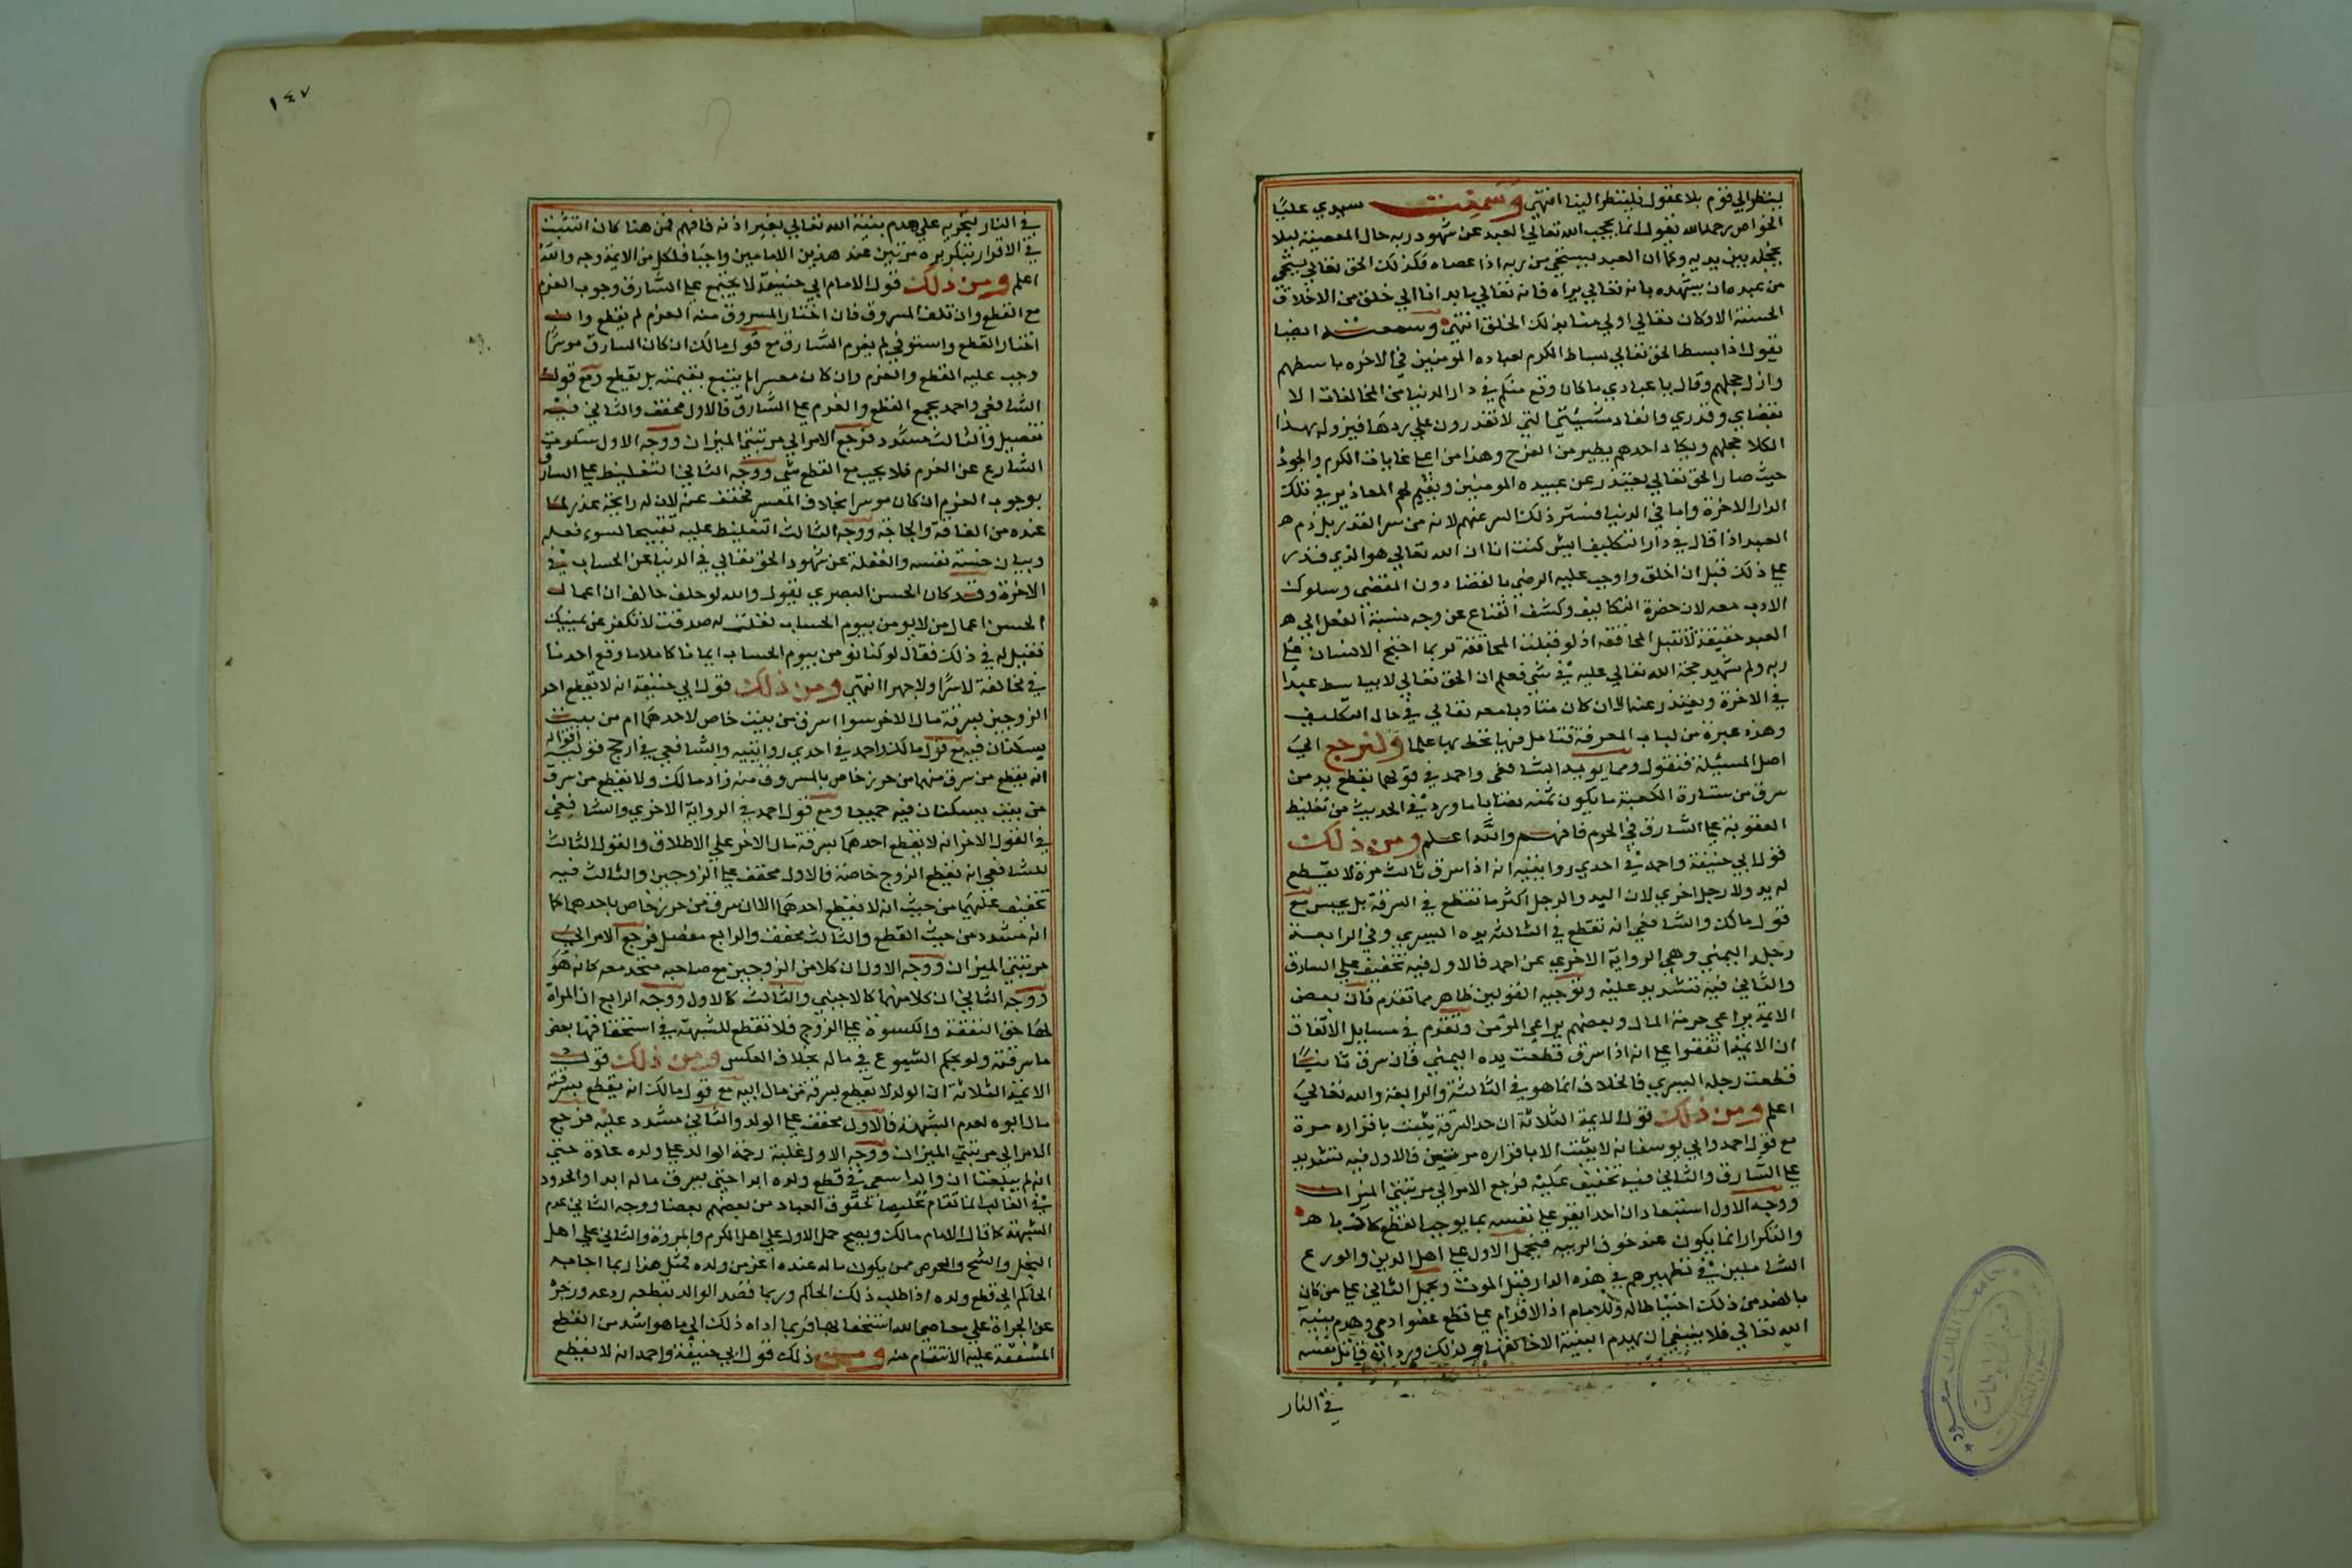 لينظر الى قوم بلا عقول فلينظر الينا انتهى وسمعت سيدي عليا
الخواص رحمه الله يقول انما يحجب الله تعالى العبد عن شهود ربه حال المعصية ليلا
يخجله بين يديه وكما ان العبد يستحي من ربه اذا عصاه فكذلك الحق تعالى يستحي
من عبده ان يشهده بانه تعالى يراه فانه تعالى ما بدانا الى خلق من الاخلاق
الحسنة الا وكان تعالى اولى منا بذلك الخلق انتهى وسمعته ايضا
يقول اذا بسط الحق تعالى بساط الكرم لعباده المومنين في الاخره باسطهم
وازل خجلهم وقال يا عبادي ما كان وقع منكم في دار الدنيا من المخالفات الا
بقضاي وقدري وانفاد مشيئتي التي لا تقدرون على ردها فيزول بهذا
الكلام خجلهم ويكاد احدهم يطير من الفرح وهذا من اعلى غايات الكرم والجود
حيث صار الحق تعالى يعتذر عن عبيده المومنين ويقيم لهم المعاذير في تلك
الدار الاخرة واما في الدنيا فستر ذلك السر عنهم لانه من سر القدر بل ذم
العبد اذا قال في دار التكليف ايش كنت انا ان الله تعالى هو الذي قدر
على ذلك قبل ان اخلق واوجب عليه الرضى بالقضا دون المقضى وسلوك
الادب معه لان حضرة التكاليف وكشف القناع عن وجه نسبة الفعل الى
العبد حقيقة لا تقبل المحاققه اذ لو قبلت المحاققة لربما احتج الانسان على
ربه ولم يشهد حجة الله تعالى عليه في شي فعلم ان الحق تعالى لا يباسط عبدا
في الاخرة ويعتذر عنه الا ان كان متادبا معه تعالى في حال التكليف
وهذه عبرة من لباب المعرفة فتامل فيها تحط بها علما ولنرجع الى
اصل المسئلة فنقول ومما يويد الشافعي واحمد في قولهما بقطع يد من
سرق من ستارة الكعبة ما يكون ثمنه نصابا ما ورد في الحديث من تغليظ
العقوبة على السارق في الحرم فافهم والله اعلم ومن ذلك
قول ابي حنيفة واحمد في احدى روايتيه انه اذا سرق ثالث مرة لا يقطع
له يد ولا رجل اخرى لان اليد والرجل اكثر ما تقطع في السرقة بل يحبس مع
قول مالك والشافعي انه تقطع في الثالثه يده اليسرى وفي الرابعة
رجله اليمنى وهي الرواية الاخرى عن احمد فالاول فيه تخفيف على السارق
والثاني فيه تشديد عليه وتوجيه القولين ظاهر مما تقدم فان بعض
الايمة يراعي حرمة المال وبعضهم يراعي المؤمن وتقدم في مسايل الاتفاق
ان الايمة اتفقوا على انه اذا سرق قطعت يده اليمنى فان سرق ثانيا
قطعت رجله اليسرى فالخلاف انما هو في الثالثة والرابعة والله تعالى
اعلم ومن ذلك قول الايمة الثلاثة ان حد السرقة يثبت باقراره مرة
مع قول احمد وابي يوسف انه لا يثبت الا باقراره مرتين فالاول فيه تشديد
على السارق والثاني فيه تخفيف عليه فرجع الامر الى مرتبتي الميزان
ووجه الاول استبعاد ان احدا يقر على نفسه بما يوجب القطع كاذبا
والتكرار انما يكون عند خوف الريبه فيحمل الاول على اهل الدين والورع
الشاملين في تطهيرهم في هذه الدار قبل الموت ويحمل الثاني على من كان
بالضد من ذلك احتياطا له وللامام اذ الاقدام على قطع عضو ادمي وهدم بنية
الله تعالى فلا ينبغي ان يهدم البنية الا خالقها ولذلك ورد انه قاتل نفسه
في النار
١٤٧
في النار لتجريه على هدم بنية الله تعالى بغير اذنه فافهم فمن هنا كان التثبت
في الاقرار بتكريره مرتين عند هذين الامامين واجبا فلكل من الايمة وجه والله
اعلم ومن ذلك قول الامام ابي حنيفة لا يجتمع على السارق وجوب الغرم
مع القطع وان تلف المسروق فان اختار المسروق منه الغرم لم يقطع وان
اختار القطع واستوفى لم يغرم السارق مع قول مالك ان كان السارق موسرا
وجب عليه القطع والغرم وان كان معسرا لم يتبع بقيمته بل يقطع ومع قول
الشافعي واحمد يجمع القطع والغرم على السارق فالاول مخفف والثاني فيه
تفصيل والثالث مشدد فرجع الامر الى مرتبتي الميزان ووجه الاول سكوت
الشارع عن الغرم فلا يجب مع القطع شي ووجه الثاني التغليظ على السارق
بوجوب الغرم ان كان موسرا بخلاف المعسر يخفف عنه لان له رايحة عذر لما
عنده من الفاقة والحاجة ووجه الثالث التغليظ عليه تقبيحا لسوء فعله
وبيان خسة نفسه والغفلة عن شهود الحق تعالى في الدنيا عن الحساب في
الاخرة وقد كان الحسن البصري يقول والله لو حلف حالف ان اعمال
الحسن اعمال من لا يومن بيوم الحساب لقلت له صدقت لا تكفر عن يمينك
فقيل له في ذلك فقال لو كنا نومن بيوم الحساب ايمانا كاملا ما وقع احدنا
في مخالفة لا سرا ولا جهرا انتهى ومن ذلك قول ابي حنيفة انه لا يقطع احد
الزوجين بسرقة مال الاخر سوا اسرق من بيت خاص لاحدهما ام من بيت
يسكنان فيه مع قول مالك واحمد في احدى روايتيه والشافعي في ارجح قوليه اقواله
انه يقطع من سرق منهما من حرز خاص بالمسروق منه زاد مالك ولا يقطع من سرق
من بيت يسكنان فيه جميعا ومع قول احمد في الرواية الاخرى والشافعي
في القول الاخر انه لا يقطع احدهما بسرقة مال الاخر على الاطلاق والقول الثالث
للشافعي انه يقطع الزوج خاصة فالاول مخفف على الزوجين والثالث فيه
تخفيف عليهما من حيث انه لا يقطع احدهما الا ان سرق من حرز خاص باحدهما كما
انه مشدد من حيث القطع والثالث مخفف والرابع مفصل فرجع الامر الى
مرتبتي الميزان ووجه الاول ان كلا من الزوجين مع صاحبه متحد معه كانه هو
ووجه الثاني ان كلا منهما كالاجنبي والثالث كالاول ووجه الرابع ان المراة
لها حق النفقة والكسوة على الزوج فلا تقطع للشبهة في استحقاقها بعض
ما سرقته ولو بحكم الشيوع في ماله بخلاف العكس ومن ذلك قول
الايمة الثلاثة ان الولد لا يقطع بسرقة من مال ابيه مع قول مالك انه يقطع بسرقة
مال ابوه لعدم الشبهة فالاول مخفف على الولد والثاني مشدد عليه فرجع
الامر الى مرتبتي الميزان ووجه الاول غلبة رحمة الوالد على ولده عادة حتى
انه لم يبلغنا ان والدا سعى في قطع ولده ابدا حتى يسرق ماله ابدا والحدود
في الغالب انما تقام تخليصا لحقوق العباد من بعضهم بعضا ووجه الثاني عدم
الشبهة كما قال الامام مالك ويصح حمل الاول على اهل الكرم والمروة والثاني على اهل
البخل والشح والحرص ممن يكون ماله عنده اعز من ولده فمثل هذا ربما اجابه
الحاكم الى قطع ولده اذا طلب ذلك الحاكم وربما قصد الوالد بقطعه ردعه وزجره
عن الجراة على معاصي الله استخفافا بها فربما اداه ذلك الى ما هو اشد من القطع
المشفقة عليه الانتقام منه ومن ذلك قول ابي حنيفة واحمد انه لا يقطع